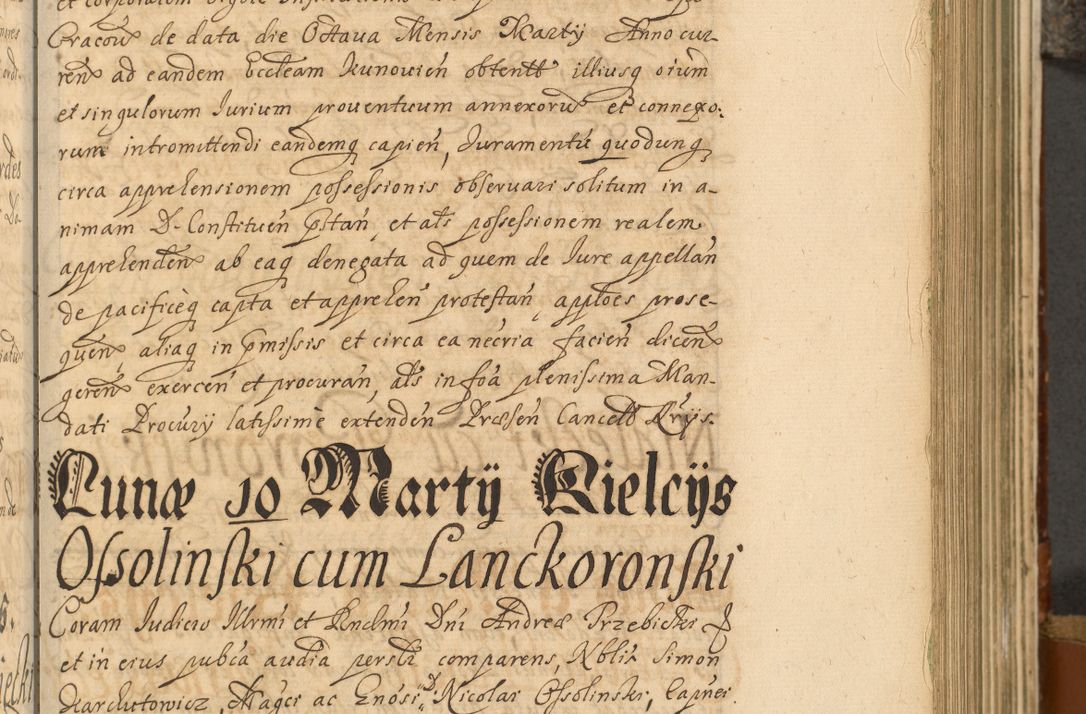 Cracou de data die Octaua Mensis Martÿ Anno cur-
ren ad eandem Eccleam Kunouień obtentt illiusq oium
et singulorum Iurium prouentuum annexoru et connexo:
rum intromittendi eandemq capień, Iuramentu quodunq
circa apprehensionem possessionis obseruari solitum in a-
nimam D. Constituen pstań et als possessionem realem
apprehenden ab eaq denegata ad quem de Iure appellań
de pacificeq capta et apprehen protestań apploes prose-
quen aliaq in pmissis et circa ea necria facień dicen
geren exercen et procurań als in foa plenissima Man-
dati Procurÿ latissime extenden Præsen Cancell Rrÿs.
Lunæ 10 Martÿ Kielcÿs
Ossolinski cum Lanckoronski
Coram Iudicio Illrmi et Rndmi Dni Andreæ Trzebicki
et in eius pubca audia perslr comparens, Nblis Simon
Karchutowicz, Magci ac Gnosi Nicolai Ossolinski, Capnei